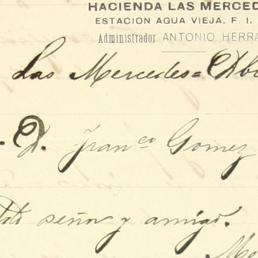 HACIENDA LAS MERCED
ESTACION AGUA VIEJA, F. I.
Administrador ANTONIO HERRA
Las Mercedes Ab
D. Franco Gomez
señor y amigo.